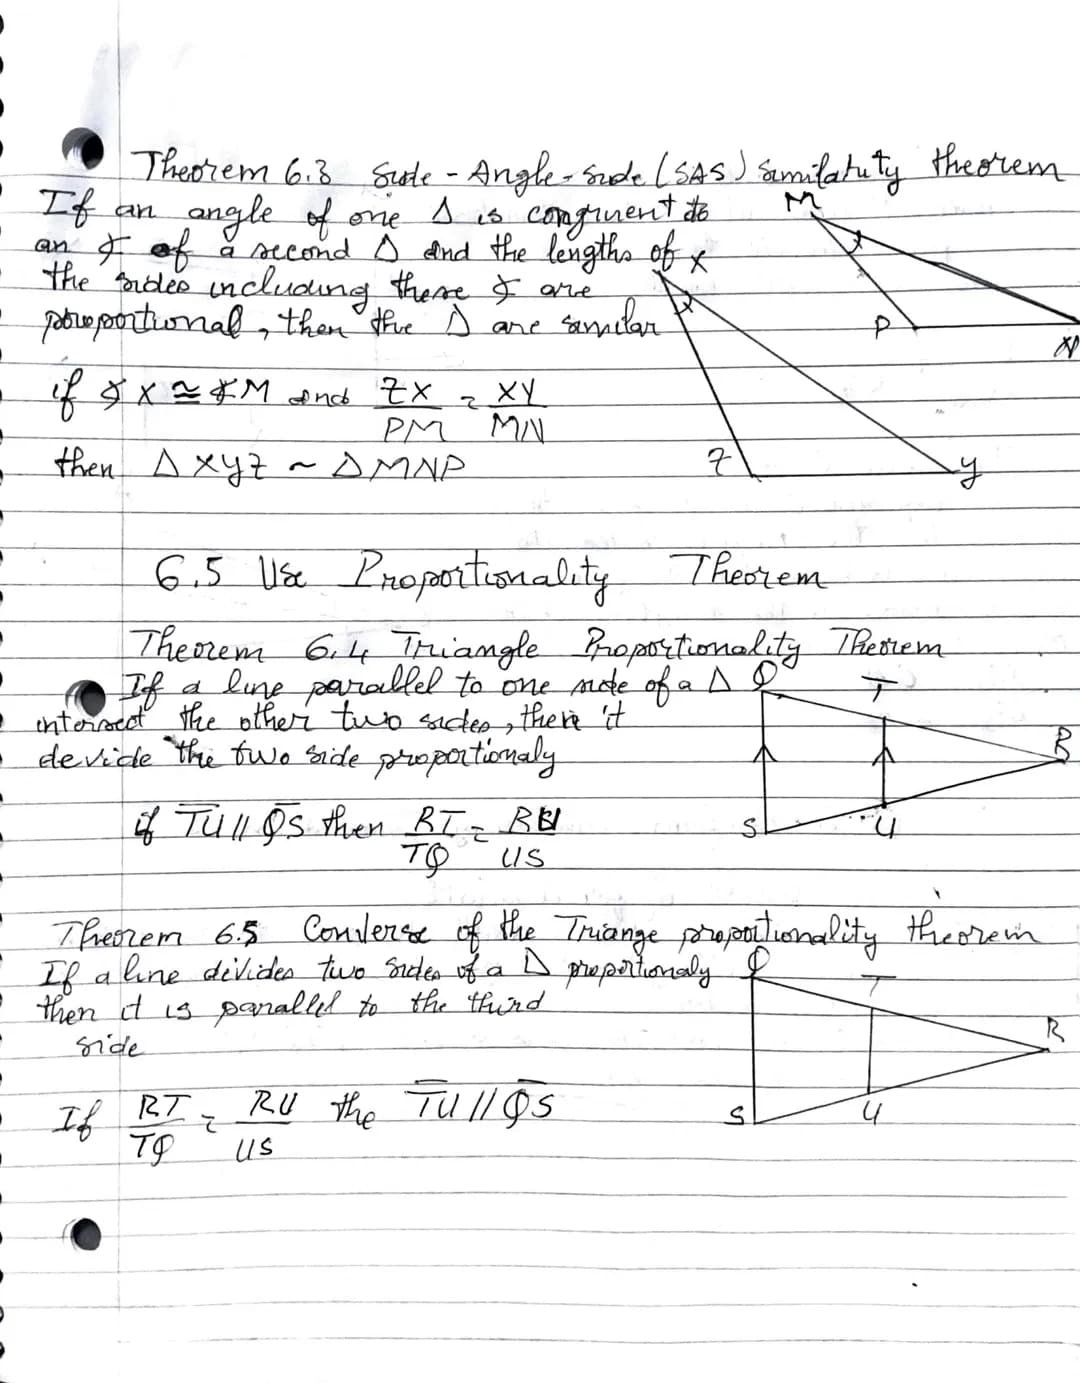 Theorem 6.3 Side - Angle - Side (SAS) Similatuty theorem
If an angle of one Δ is congruent to
an ∡ of a second Δ and the lengths of
the sides including these ∡ are
proportional, then the Δ are similar
M
X
P
N
Z
Y
if ∡X ≅ ∡M and ZX/PM = XY/MN
then ΔXYZ ~ ΔMNP
6.5 Use Proportionality Theorem
Theorem 6.4 Triangle Proportionality Theorem
If a line parallel to one side of a Δ
intersect the other two sides, then it
devide the two side proportionaly
Q
T
R
S
U
if TU // QS then RT/TQ = RU/US
Theorem 6.5 Converse of the Triange proportionality theorem
If a line devides two sides of a Δ proportionaly
then it is parallel to the third
side
Q
T
R
S
U
If RT/TQ = RU/US the TU // QS